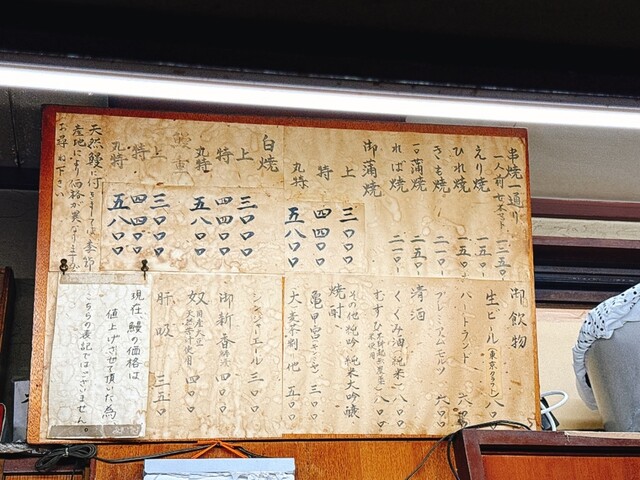 串焼一通り
一人前
えり焼 一五〇
ひれ焼 一五〇
きも焼 二一〇
一口蒲焼 二一〇
れば焼 二一〇
御蒲焼
上 三〇〇〇
特 四四〇〇
丸特 五八〇〇
白焼
上 三〇〇〇
特 四四〇〇
丸特 五八〇〇
鰻重
上 三〇〇〇
特 四四〇〇
丸特 五八〇〇
天然鰻に付きましては季節
産地により価格が異なりますが
お尋ね下さい
御飲物
生ビール(東京クラフト) 八〇〇
ハートランド
プレミアムモルツ 六〇〇
清酒
くくみ酒(純米) 八〇〇
むすひ 八〇〇
その他 純吟 純米大吟醸
焼酎
亀甲宮(キンミヤ) 三〇〇
大 麦茶割 他 五〇〇
ジンジャーエール 三〇〇
御新香 四〇〇
奴 国産大豆 天然茶汁使用 四〇〇
肝吸 三五〇
現在、鰻の価格は
値上げさせて頂いた為
こちらの表記ではございません。